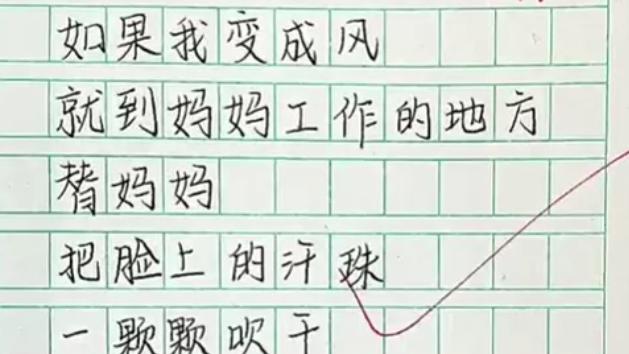 如果我变成风
就到妈妈工作的地方
替妈妈
把脸上的汗珠
一颗颗吹干